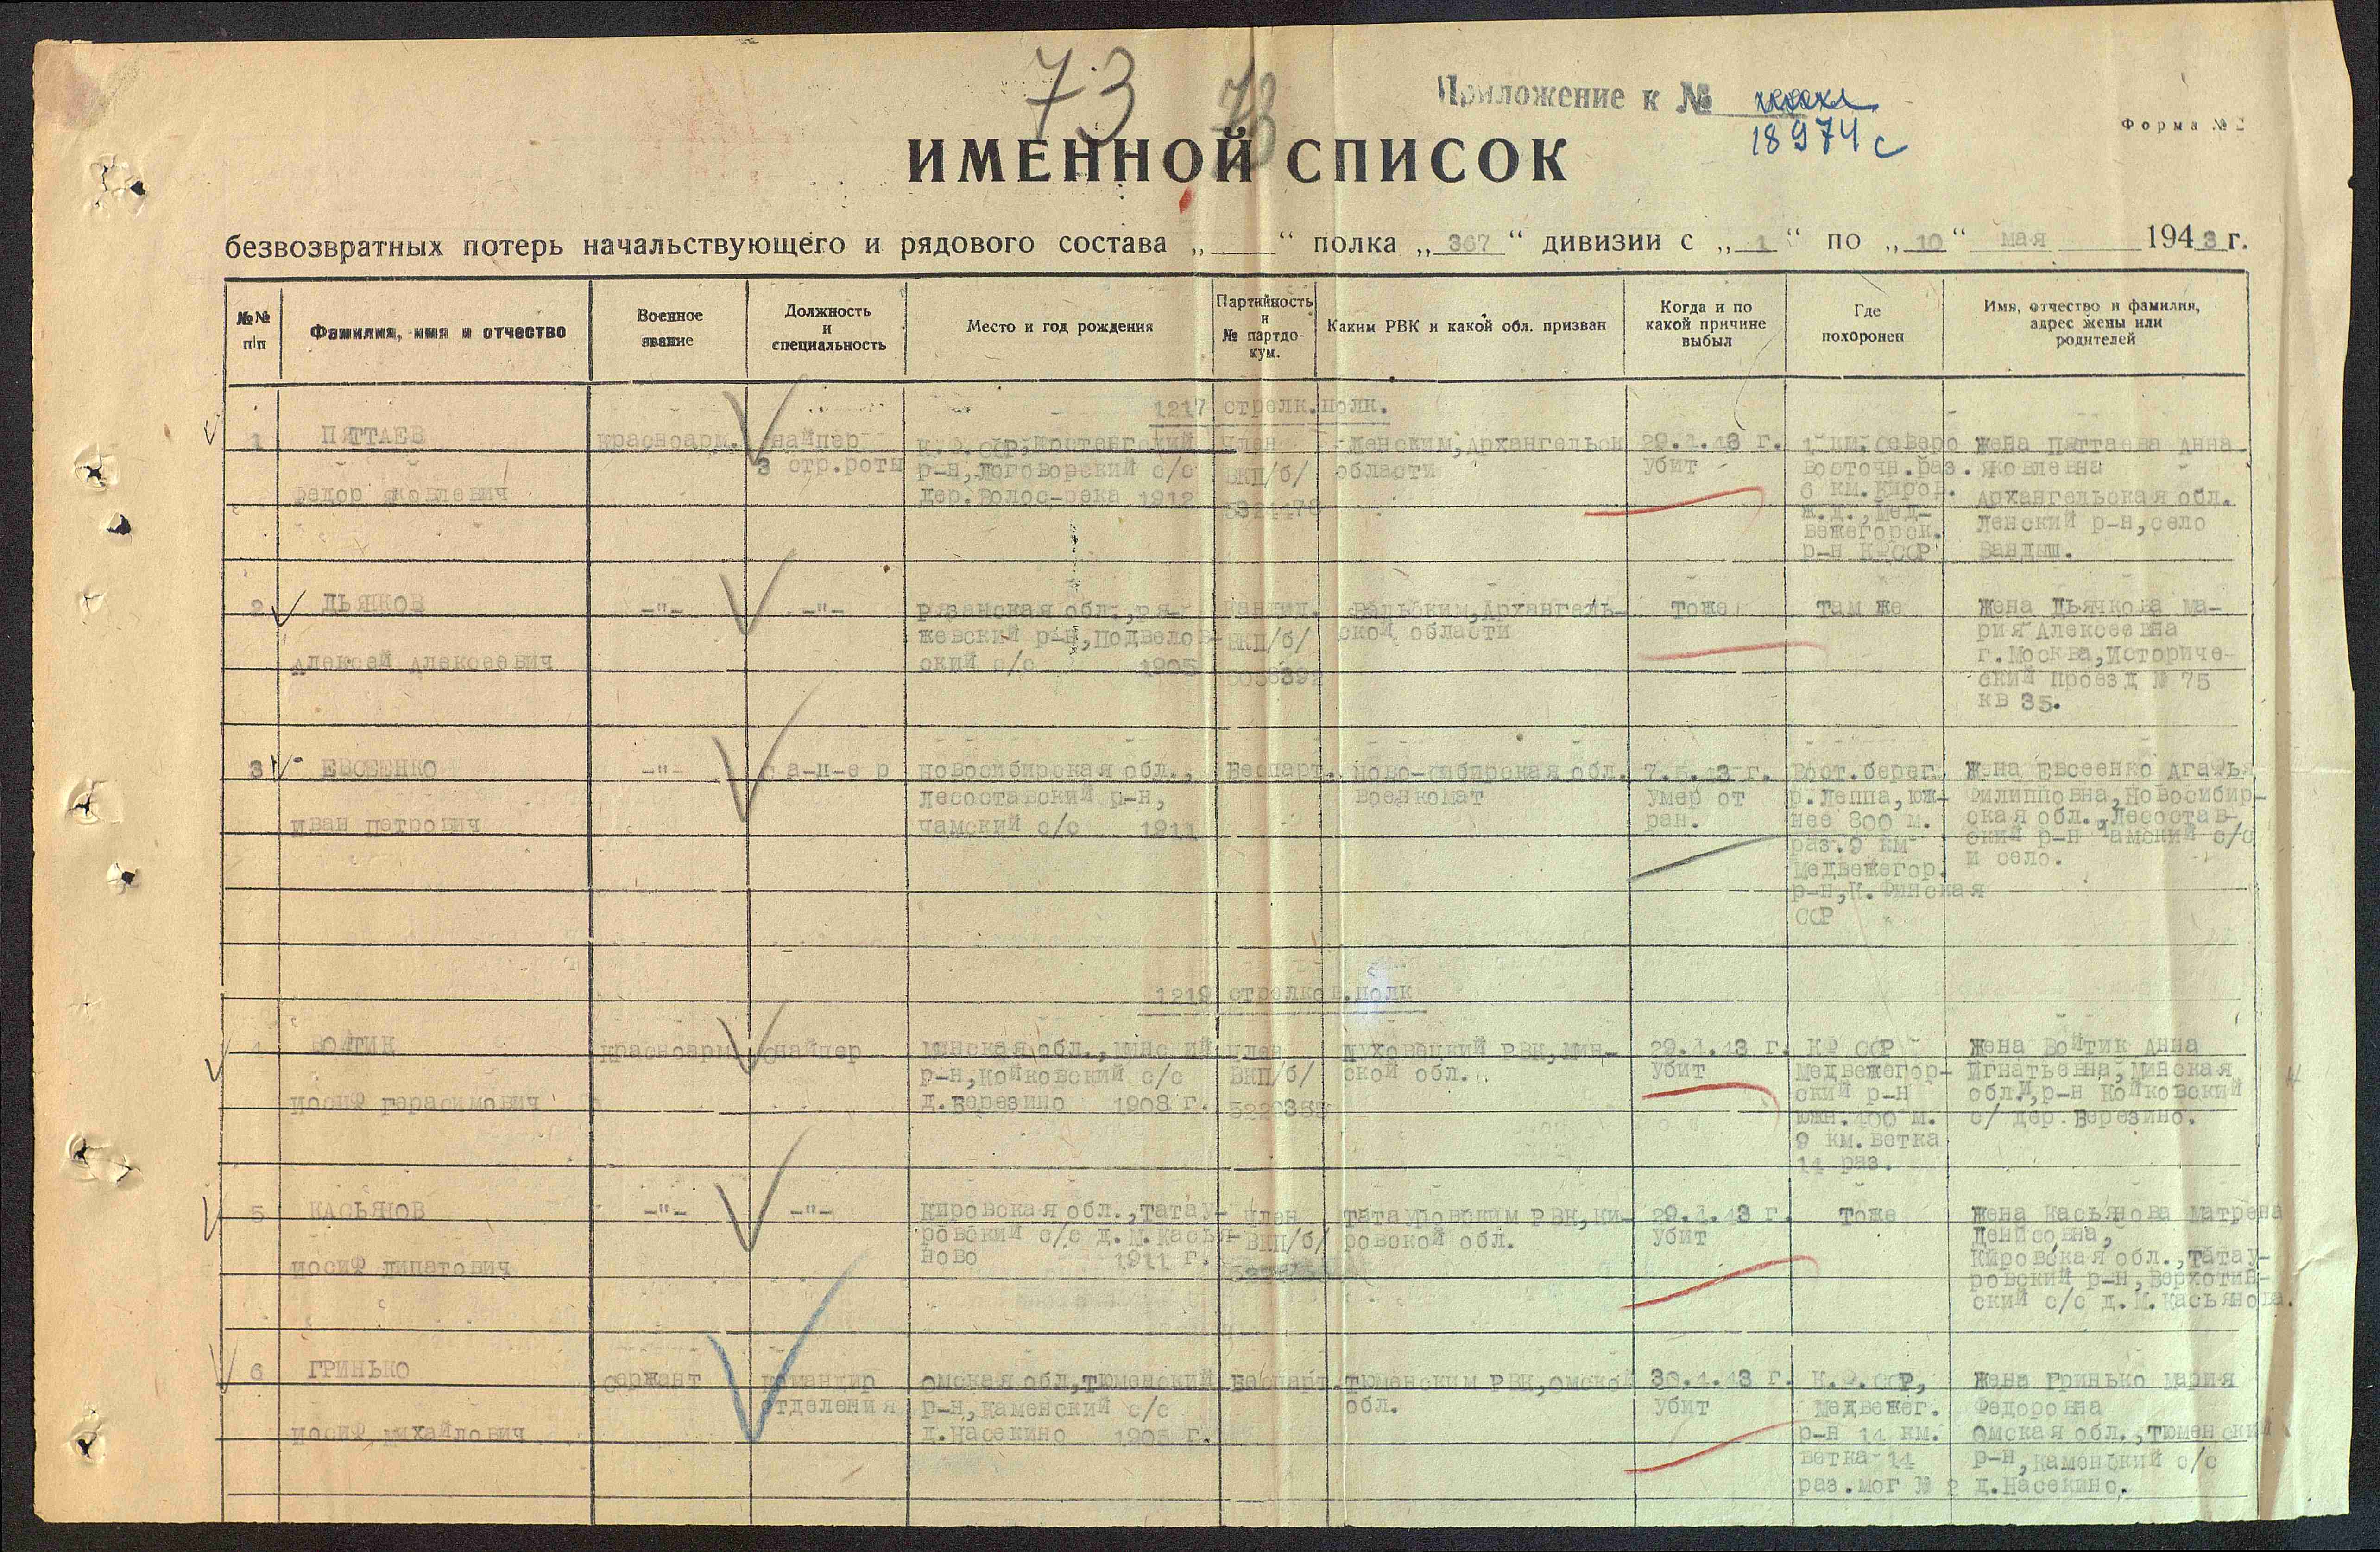 73
73
Приложение к №
18974с
Форма № 2
ИМЕННОЙ СПИСОК
безвозвратных потерь начальствующего и рядового состава „ “ полка „ 367 “ дивизии с „ 1 “ по „ 10 “ мая 1943 г.
№№ п|п
Фамилия, имя и отчество
Военное звание
Должность и специальность
Место и год рождения
Партийность и № партдокум.
Каким РВК и какой обл. призван
Когда и по какой причине выбыл
Где похоронен
Имя, отчество и фамилия, адрес жены или родителей
1217 стрелк.полк.
1
ПЯТТАЕВ
Федор Яковлевич
красноарм.
снайпер
3 стр.роты
р-н, Логоворский с/с
дер. Волос-река 1912
Член
ВКП/б/
Ленским, Архангельск
области
29.4.43 г.
убит
1 км. северо
восточн.раз.
6 км. Киров.
ж.д., Мед-
вежегорск.
р-н КФССР
Жена Пяттаева Анна
Яковлевна
Архангельская обл.
Ленский р-н, село
Вандыш.
2
ДЬЯЧКОВ
Алексей Алексеевич
-"-
-"-
Рязанская обл., Ря-
жевский р-н, Подвелов
ский с/с 1905
Кандид.
ВКП/б/
Вельским, Архангель-
ской области
Тоже
Там же
Жена Дьячкова Ма-
рия Алексеевна
г. Москва, Историче-
ский проезд № 75
кв 35.
3
ЕВСЕЕНКО
Иван Петрович
-"-
с а-п-е р
Новосибирская обл.,
Лесоставский р-н,
Чамский с/с 1911
Беспарт.
Ново-сибирская обл.
военкомат
7.5.43 г.
умер от
ран.
Вост. берег
р. Леппа, юж-
нее 800 м.
раз. 9 км
Медвежегор.
р-н, К. Финская
ССР
Жена Евсеенко Агафья
Филипповна, Новосибир-
ская обл., Лесостав-
ский р-н Чамский с/с
и село.
1219 стрелков.полк
4
ВОЙТИК
Иосиф Герасимович
красноарм
снайпер
Минская обл., Минский
р-н, Койковский с/с
д. Березино 1908 г.
Член
ВКП/б/
Пуховацкий РВК, Мин-
ской обл.
29.4.43 г.
убит
КФ ССР
Медвежегор-
ский р-н
южн. 400 м.
9 км. ветка
14 раз.
Жена Войтик Анна
Игнатьевна, Минская
обл., р-н Койковский
с/ дер. Березино.
5
КАСЬЯНОВ
Иосиф Липатович
-"-
-"-
Кировская обл., Татау-
ровский с/с д. М. Касья-
ново 1911 г.
Член
ВКП/б/
Татауровским РВК, Ки-
ровской обл.
29.4.43 г.
убит
Тоже
Жена Касьянова Матрена
Денисовна,
Кировская обл., Татау-
ровский р-н, Верхотий-
ский с/с д. М. Касьянова.
6
ГРИНЬКО
Иосиф Михайлович
сержант
командир
отделения
Омская обл, Тюменский
р-н, Каменский с/с
д. Насекино 1905 г.
Беспарт.
Тюменским РВК, Омской
обл.
30.4.43 г.
убит
К.Ф.ССР,
Медвежег.
р-н 14 км.
ветка 14
раз. мог № 2
Жена Гринько Мария
Федоровна
Омская обл., Тюменский
р-н, Каменский с/с
д. Насекино.